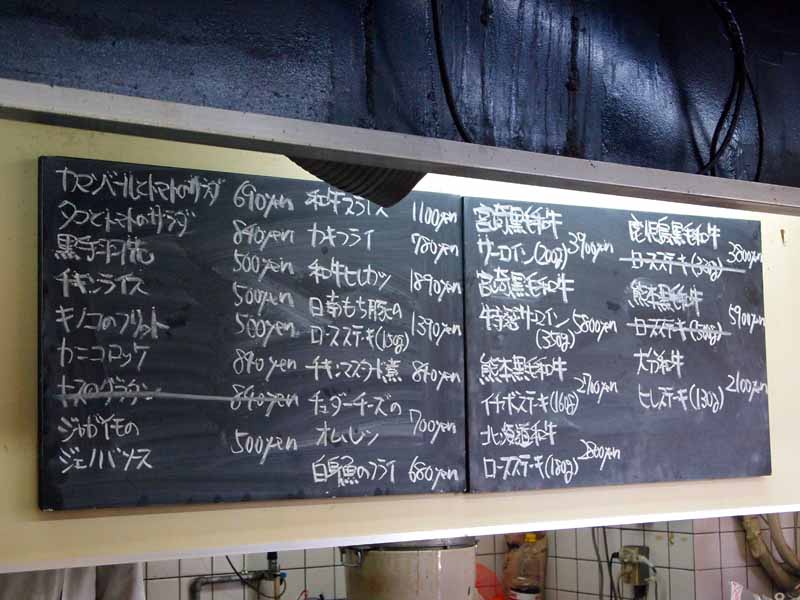 カマンベールとトマトのサラダ 690yen
タコとトマトのサラダ 840yen
黒手羽先 500yen
チキンライス 500yen
キノコのフリット 500yen
カニコロッケ 840yen
ナスのグラタン 840yen
ジャガイモの
ジェノバソース 500yen
和牛スライス 1100yen
カキフライ 780yen
和牛ヒレカツ 1890yen
日南もち豚の
ロースステキ(150g) 1390yen
チキンマスタード煮 840yen
チェダーチーズの
オムレツ 700yen
白身魚のフライ 680yen
宮崎黒毛和牛
サーロイン(200g) 3900yen
宮崎黒毛和牛
特答サーロイン 5800yen
(350g)
熊本黒毛和牛
イチボステーキ(160g) 2700yen
北海道和牛
ロースステーキ(180g) 2800yen
鹿児島黒毛和牛
ロースステキ(330g) 3800yen
熊本黒毛和牛
ロースステキ(500g) 5900yen
大分和牛
ヒレステーキ(130g) 2100yen